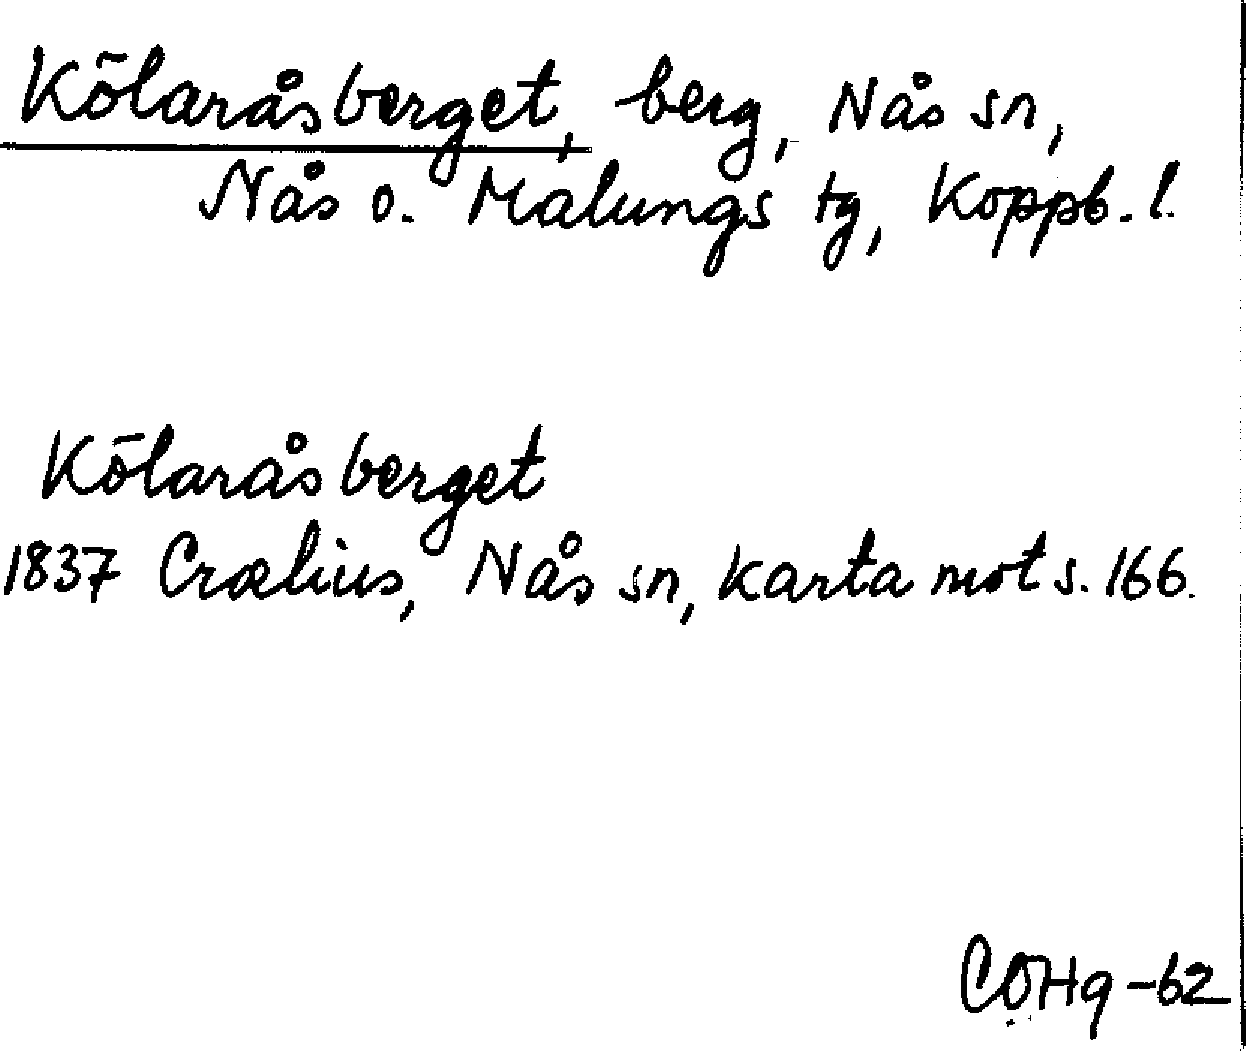 Kölaråsberget, berg, Nås sn,
Nås o. Malungs tg, Koppb. l.
Kölaråsberget
1837 Crælius, Nås sn, karta mot s. 166.
CÖHg -62